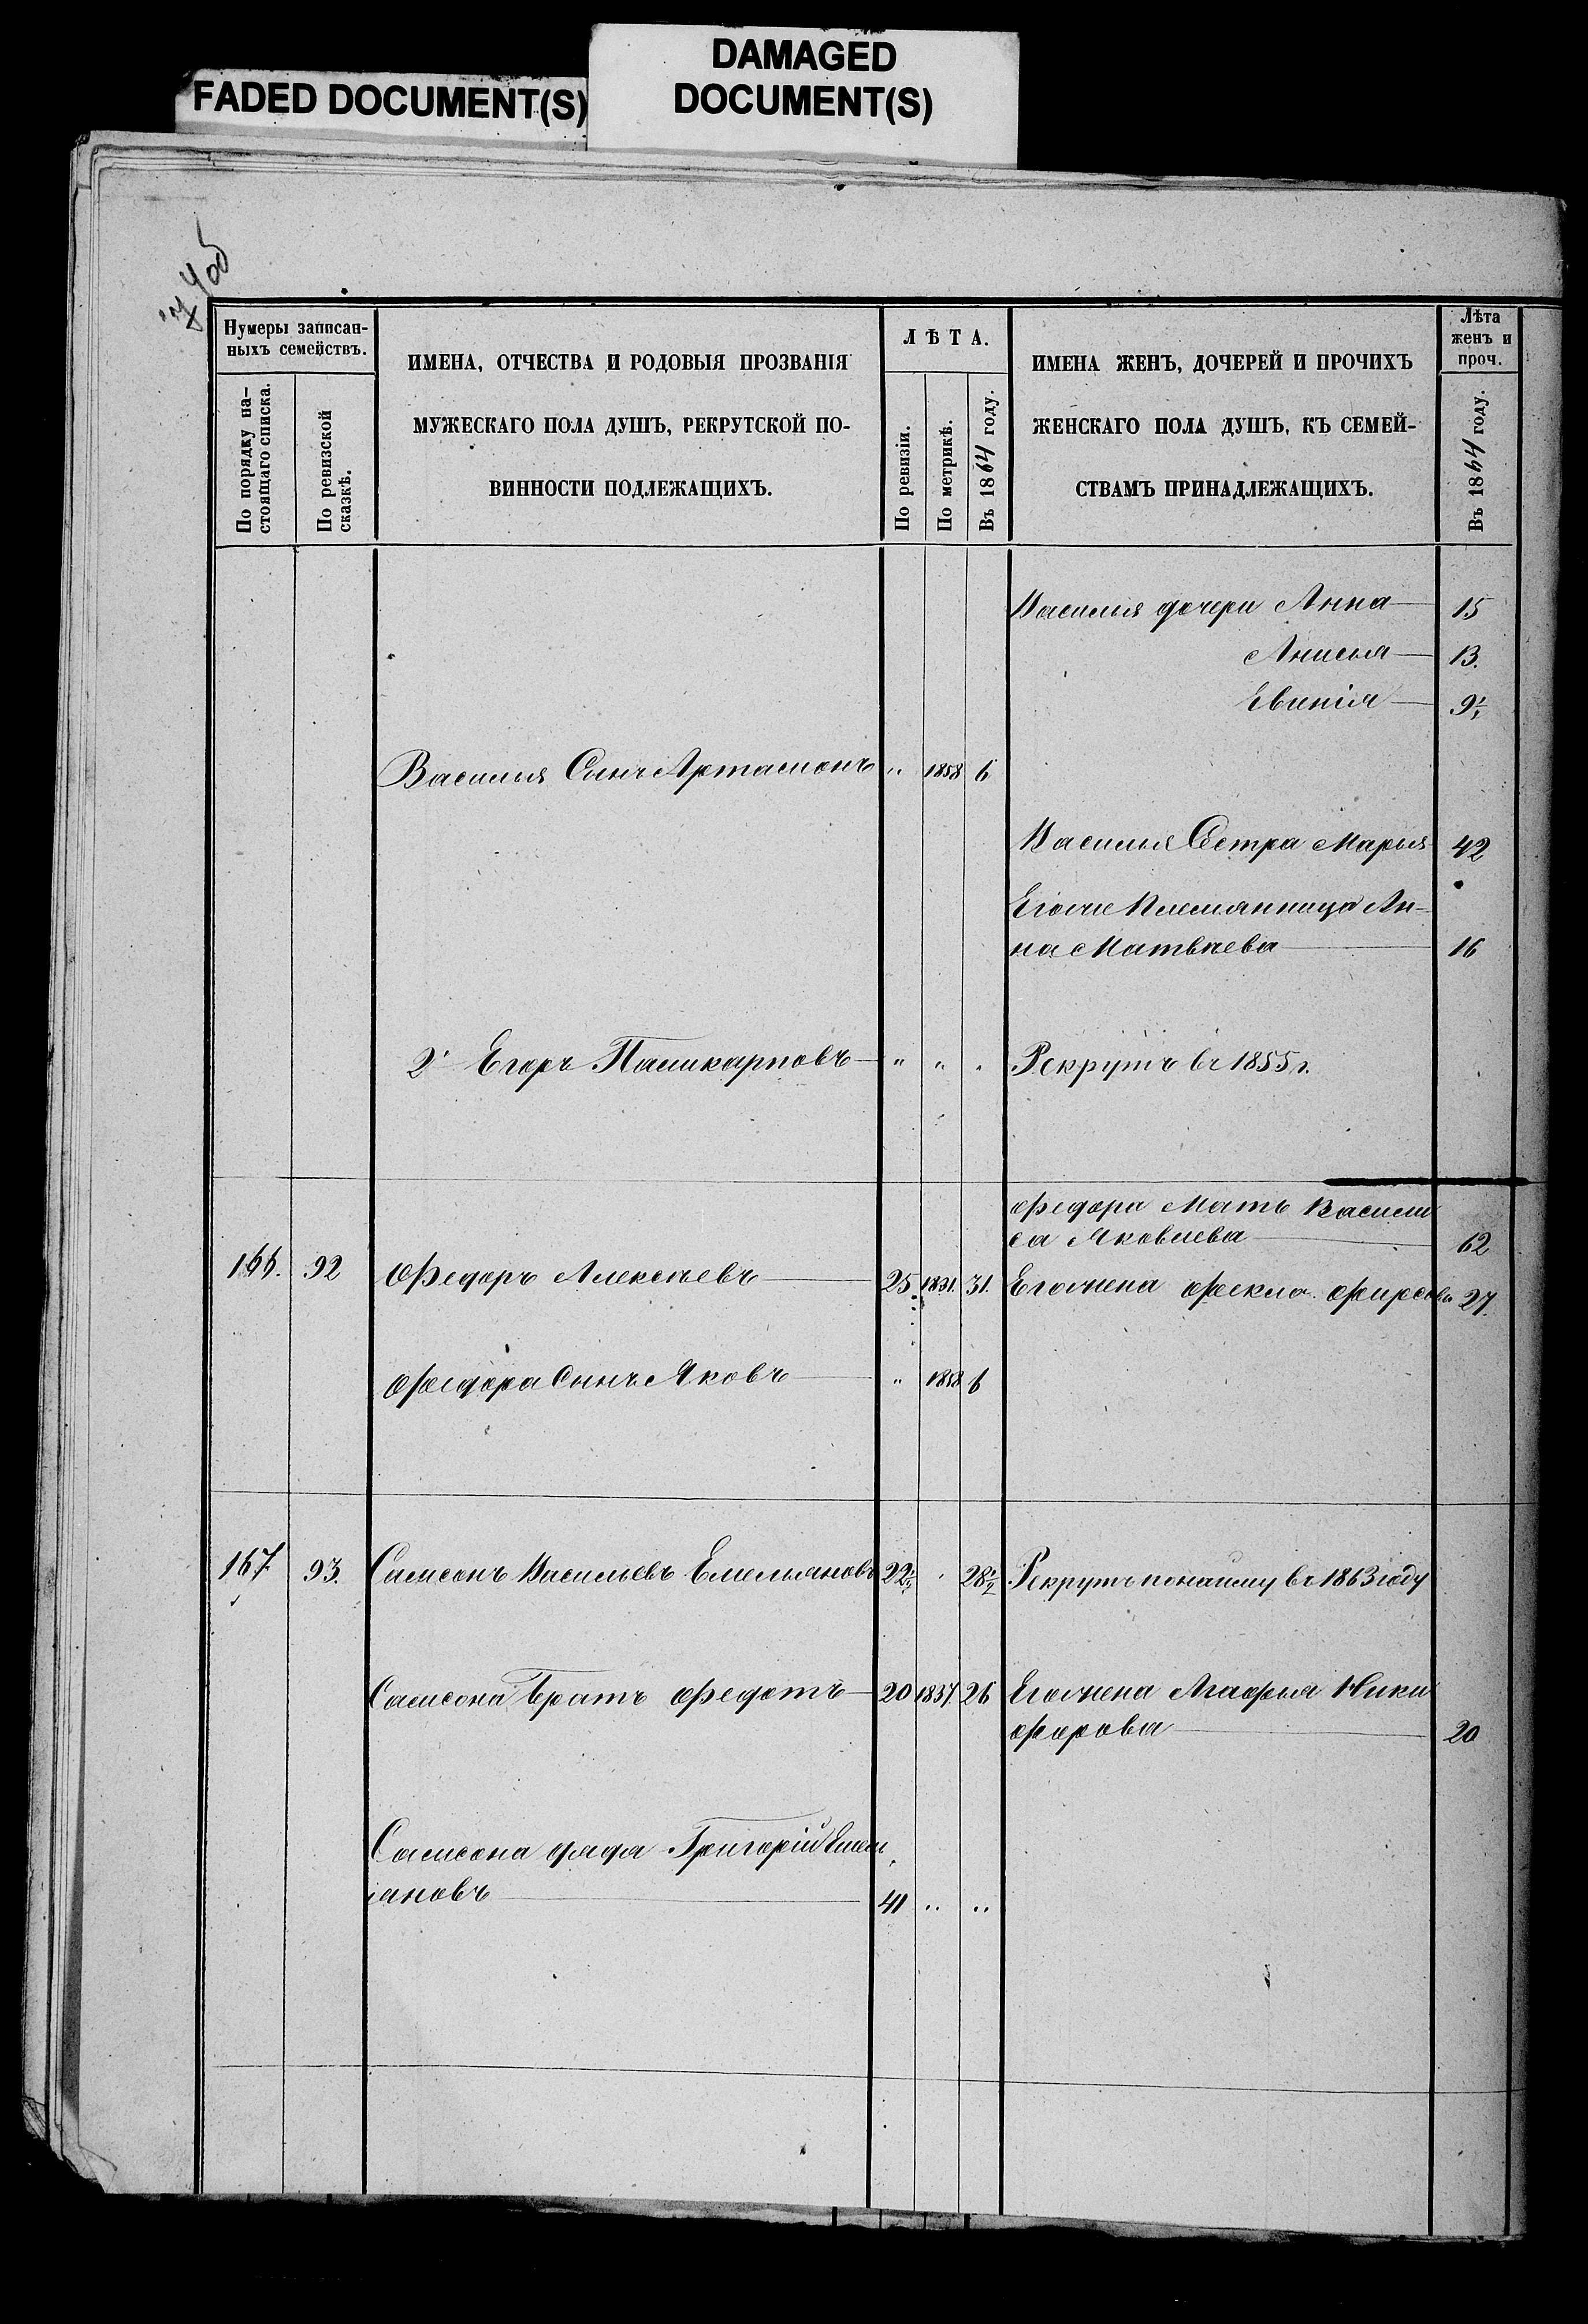 FADED DOCUMENT(S)
DAMAGED
DOCUMENT(S)
Нумеры записан-
ныхъ семействъ.
По порядку на-
стоящаго списка.
По ревизской
сказкѣ.
ИМЕНА, ОТЧЕСТВА И РОДОВЫЯ ПРОЗВАНІЯ
МУЖЕСКАГО ПОЛА ДУШЪ, РЕКРУТСКОЙ ПО-
ВИННОСТИ ПОДЛЕЖАЩИХЪ.
ЛѢТА.
По ревизіи.
По метрикѣ.
Въ 1864 году.
ИМЕНА ЖЕНЪ, ДОЧЕРЕЙ И ПРОЧИХЪ
ЖЕНСКАГО ПОЛА ДУШЪ, КЪ СЕМЕЙ-
СТВАМЪ ПРИНАДЛЕЖАЩИХЪ.
Лѣта
женъ и
проч.
Въ 1864 году.
Василья дочери Анна 15
Анисья 13.
Евгенія 9½
Василья Сынъ Артамонъ " 1858 6
Василья Сестра Марья 42
Егоже Племянница Ан-
на Матвѣева 16
2й Егоръ Поликарповъ " " " Рекрутъ въ 1855 г.
Федора Мать Васили
са Яковлева 62
166. 92 Федоръ Алексѣевъ 25 1831. 31. Егожена Фекла Фирсова 27.
Федора Сынъ Яковъ " 1858 6
167 93. Самсонъ Васильевъ Емельяновъ 22½ " 28½ Рекрутъ понайму въ 1863 году
Самсона Братъ Федотъ 20 1837. 26 Егожена Агафья Ники
форова 20
Самсона дядя Григорій Емел
ьяновъ 41 " "